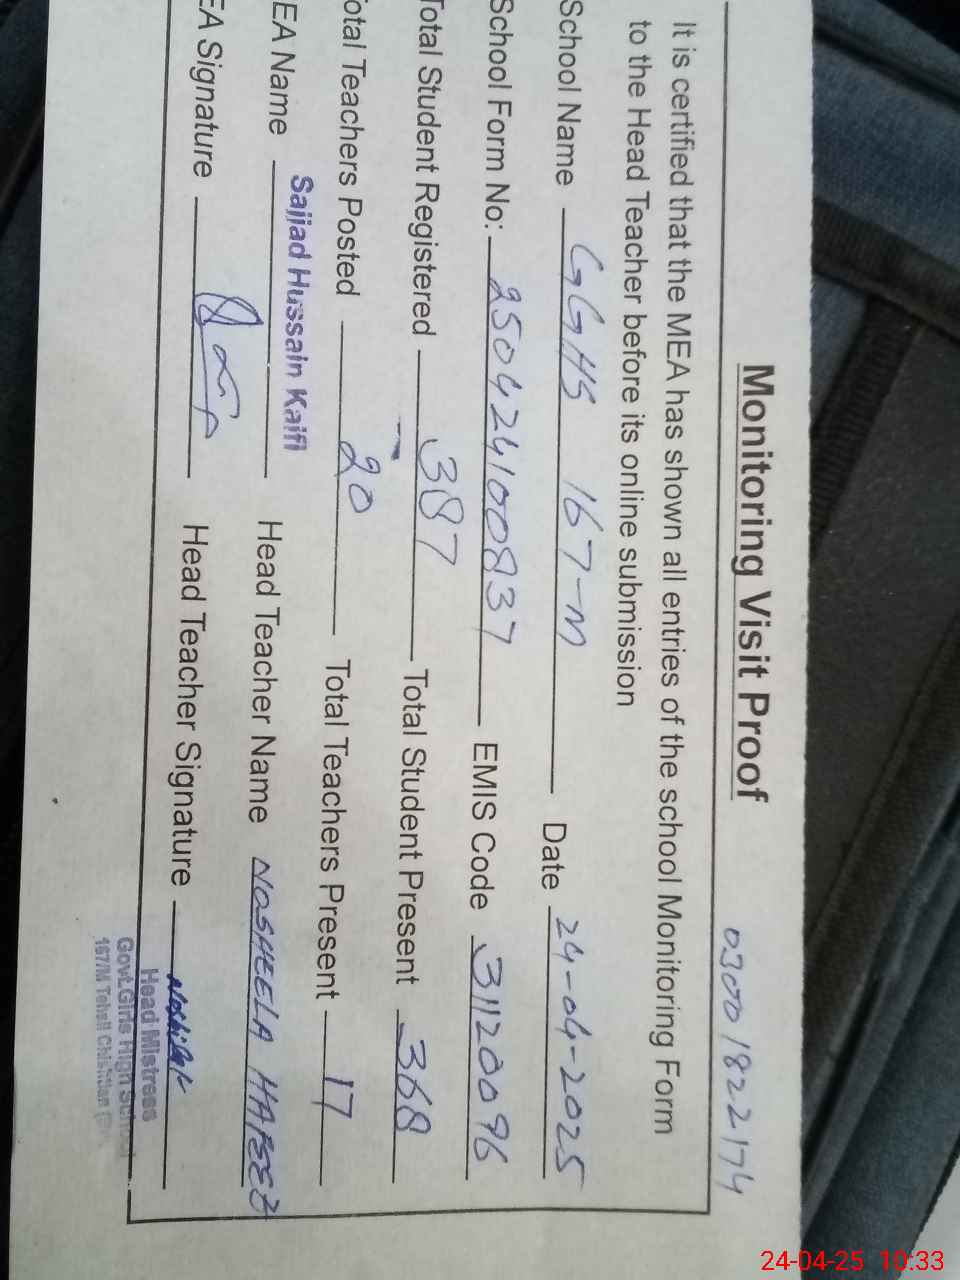 Monitoring Visit Proof
03000 1822174
It is certified that the MEA has shown all entries of the school Monitoring Form
to the Head Teacher before its online submission
School Name GGHS 167-M Date 24-04-2025
School Form No: 25042410 0837 EMIS Code 31120096
Total Student Registered 387 Total Student Present 368
otal Teachers Posted 20 Total Teachers Present 17
EA Name Sajjad Hussain Kaifi Head Teacher Name NOSHEELA HAFEEZ
EA Signature Head Teacher Signature
Head Mistress
Govt.Girls High School
167/M Tehsil Chishtian
24-04-25 10:33